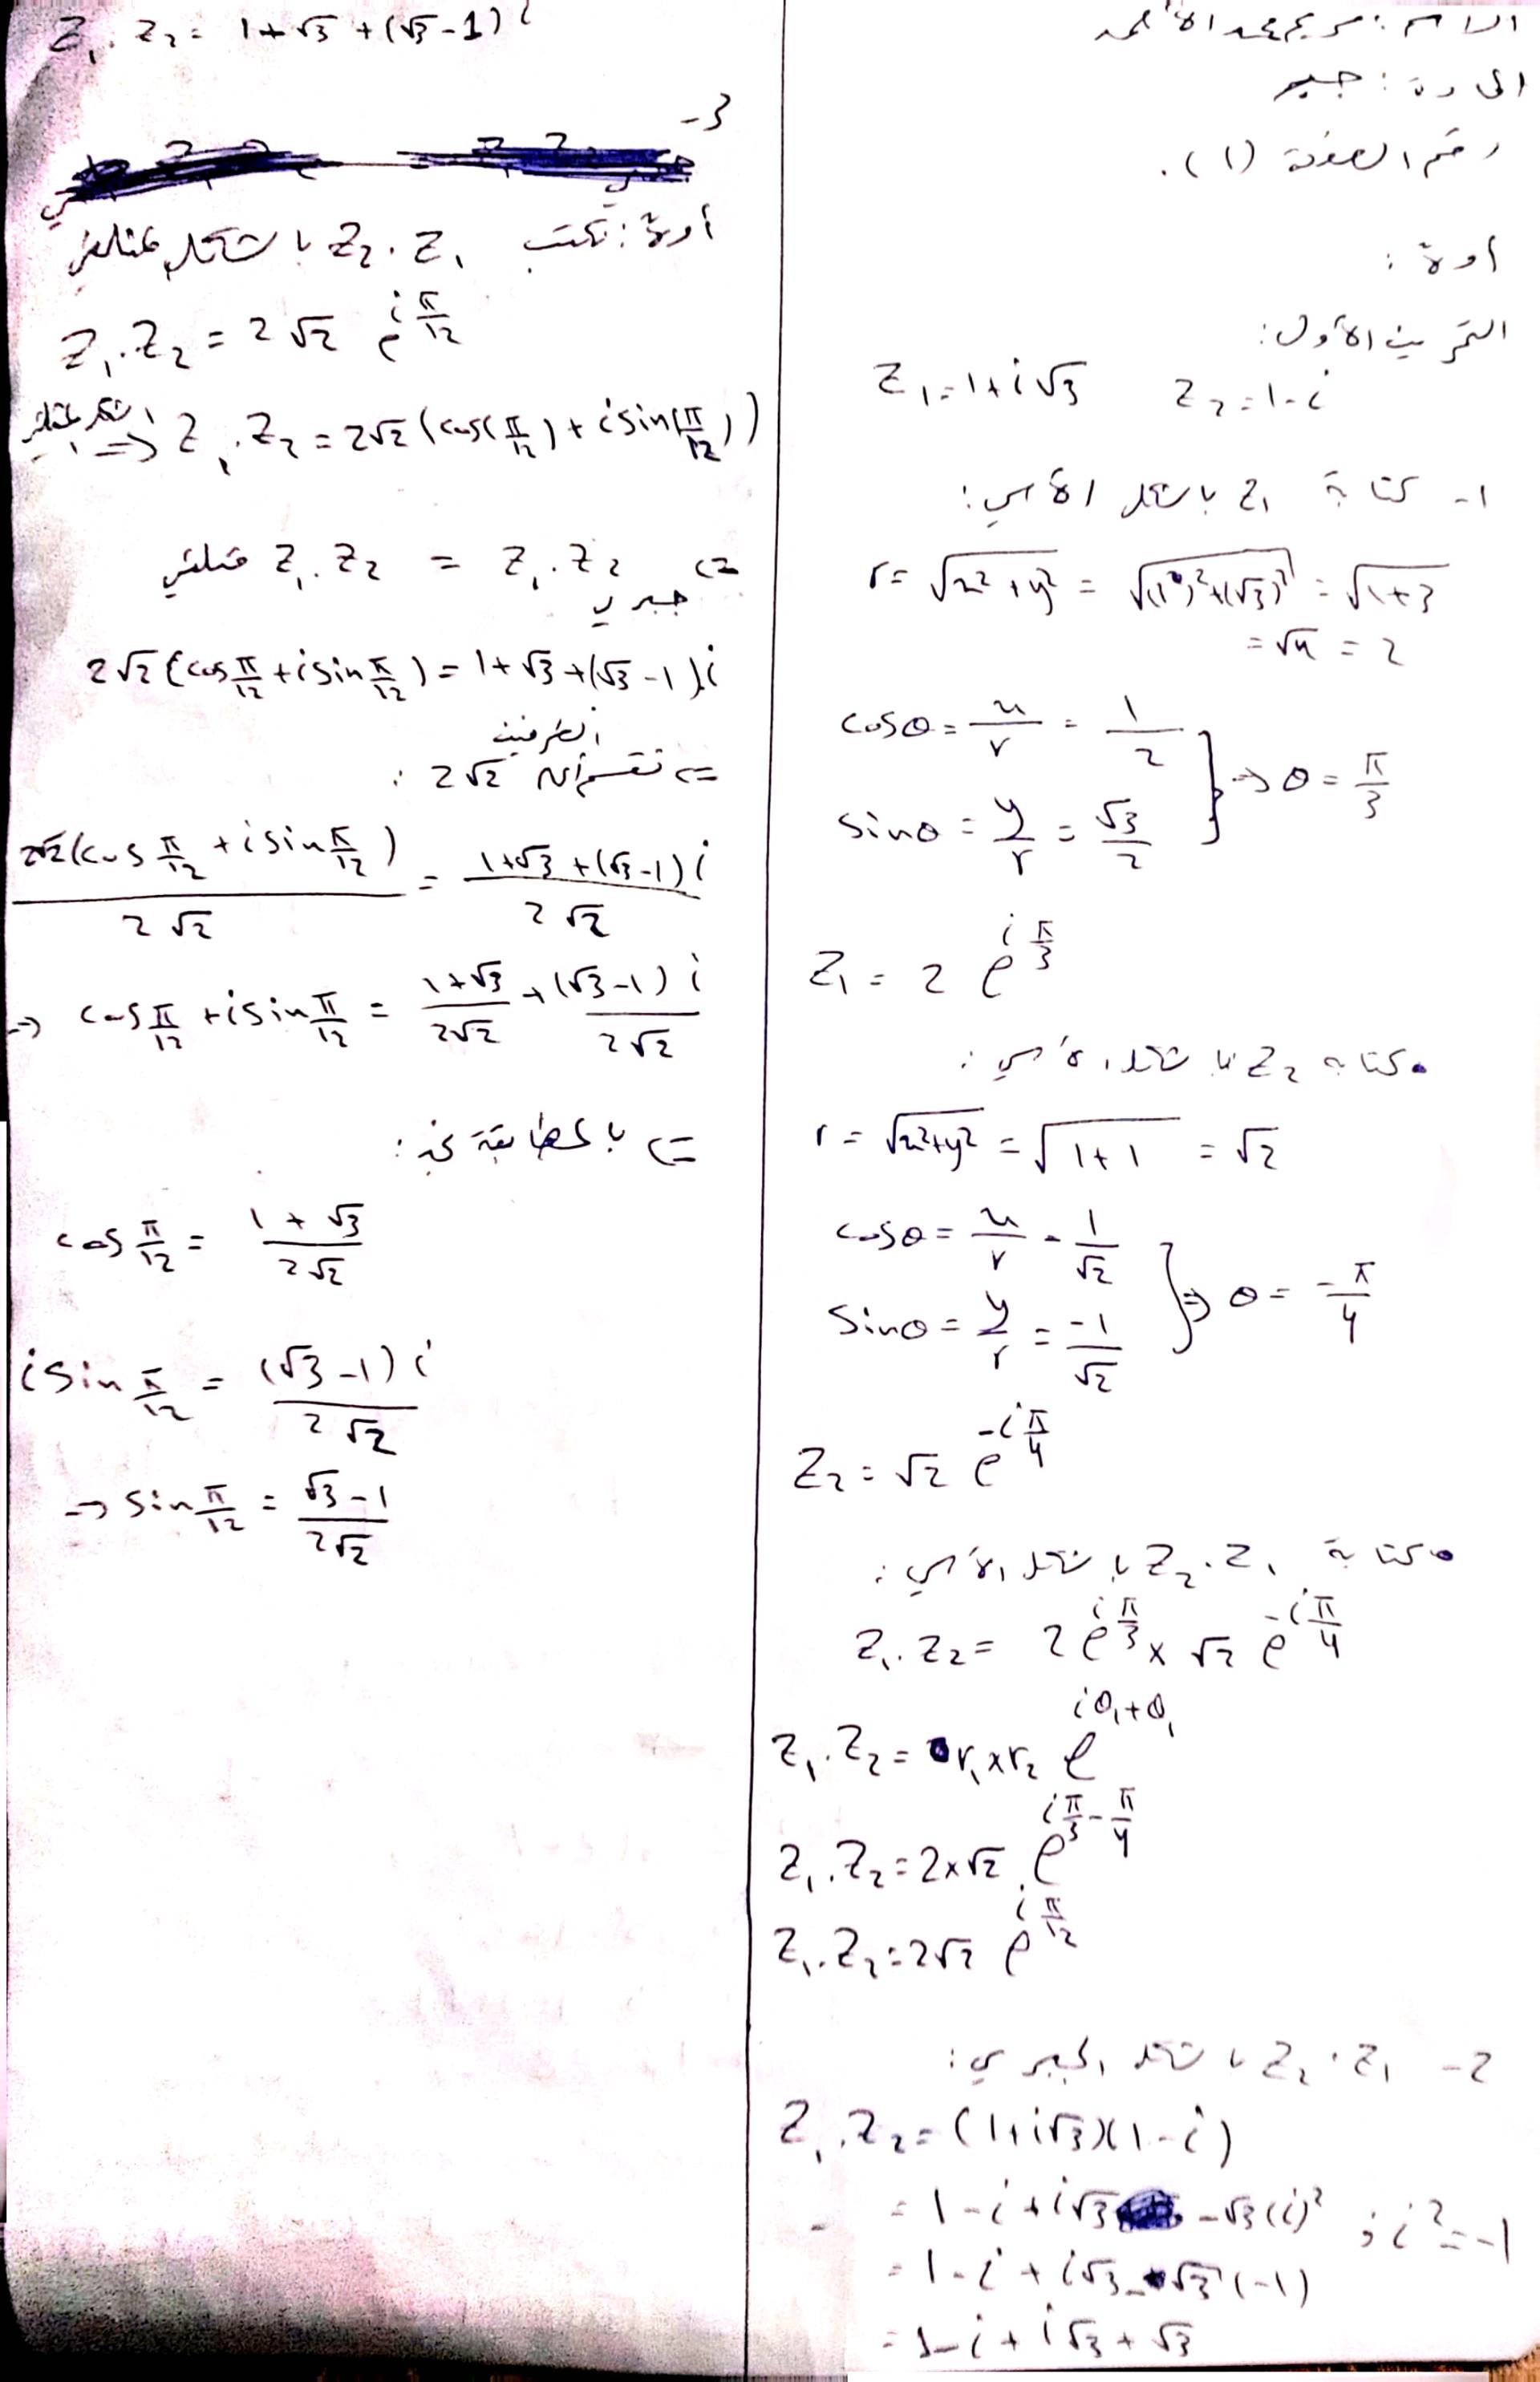 المادة : جبر
رقم الصفحة (١).
أولاً :
التمرين الأول:
Z₁ = 1 + i√3   Z₂ = 1 - i
1- كتابة Z₁ بالشكل الأسي:
r = √(x² + y²) = √((1)² + (√3)²) = √(1+3)
= √4 = 2
cosθ = x/r = 1/2
sinθ = y/r = √3/2 } ⇒ θ = π/3
Z₁ = 2 e^(i π/3)
• كتابة Z₂ بالشكل الأسي :
r = √(x²+y²) = √(1+1) = √2
cosθ = x/r = 1/√2
sinθ = y/r = -1/√2 } ⇒ θ = -π/4
Z₂ = √2 e^(-i π/4)
• كتابة Z₂ . Z₁ بالشكل الأسي :
Z₁ . Z₂ = 2 e^(i π/3) × √2 e^(-i π/4)
Z₁ . Z₂ = r₁ × r₂ e^(iθ₁+θ₁)
Z₁ . Z₂ = 2×√2 . e^(i π/3 - π/4)
Z₁ . Z₂ = 2√2 e^(i π/12)
2- Z₂ . Z₁ بالشكل الجبري :
Z₁ . Z₂ = (1+i√3)(1-i)
= 1 - i + i√3 - √3(i)² ; i² = -1
= 1 - i + i√3 - √3(-1)
= 1 - i + i√3 + √3
Z₁ . Z₂ = 1+√3 + (√3-1) i
3-
أولاً : نكتب Z₂ . Z₁ بالشكل المثلثي
Z₁ . Z₂ = 2√2 e^(i π/12)
الشكل المثلثي ⇒ Z₁ . Z₂ = 2√2 (cos(π/12) + i sin(π/12))
⇐ Z₁ . Z₂ جبري = Z₁ . Z₂ مثلثي
2√2 (cos π/12 + i sin π/12) = 1+√3 + (√3-1) i
⇐ نقسم الطرفين على 2√2 :
2√2(cos π/12 + i sin π/12) / 2√2 = 1+√3 + (√3-1) i / 2√2
⇒ cos π/12 + i sin π/12 = (1+√3)/(2√2) + (√3-1) i/(2√2)
⇐ بالمطابقة نجد :
cos π/12 = (1+√3)/(2√2)
i sin π/12 = (√3-1) i/(2√2)
⇒ sin π/12 = (√3-1)/(2√2)